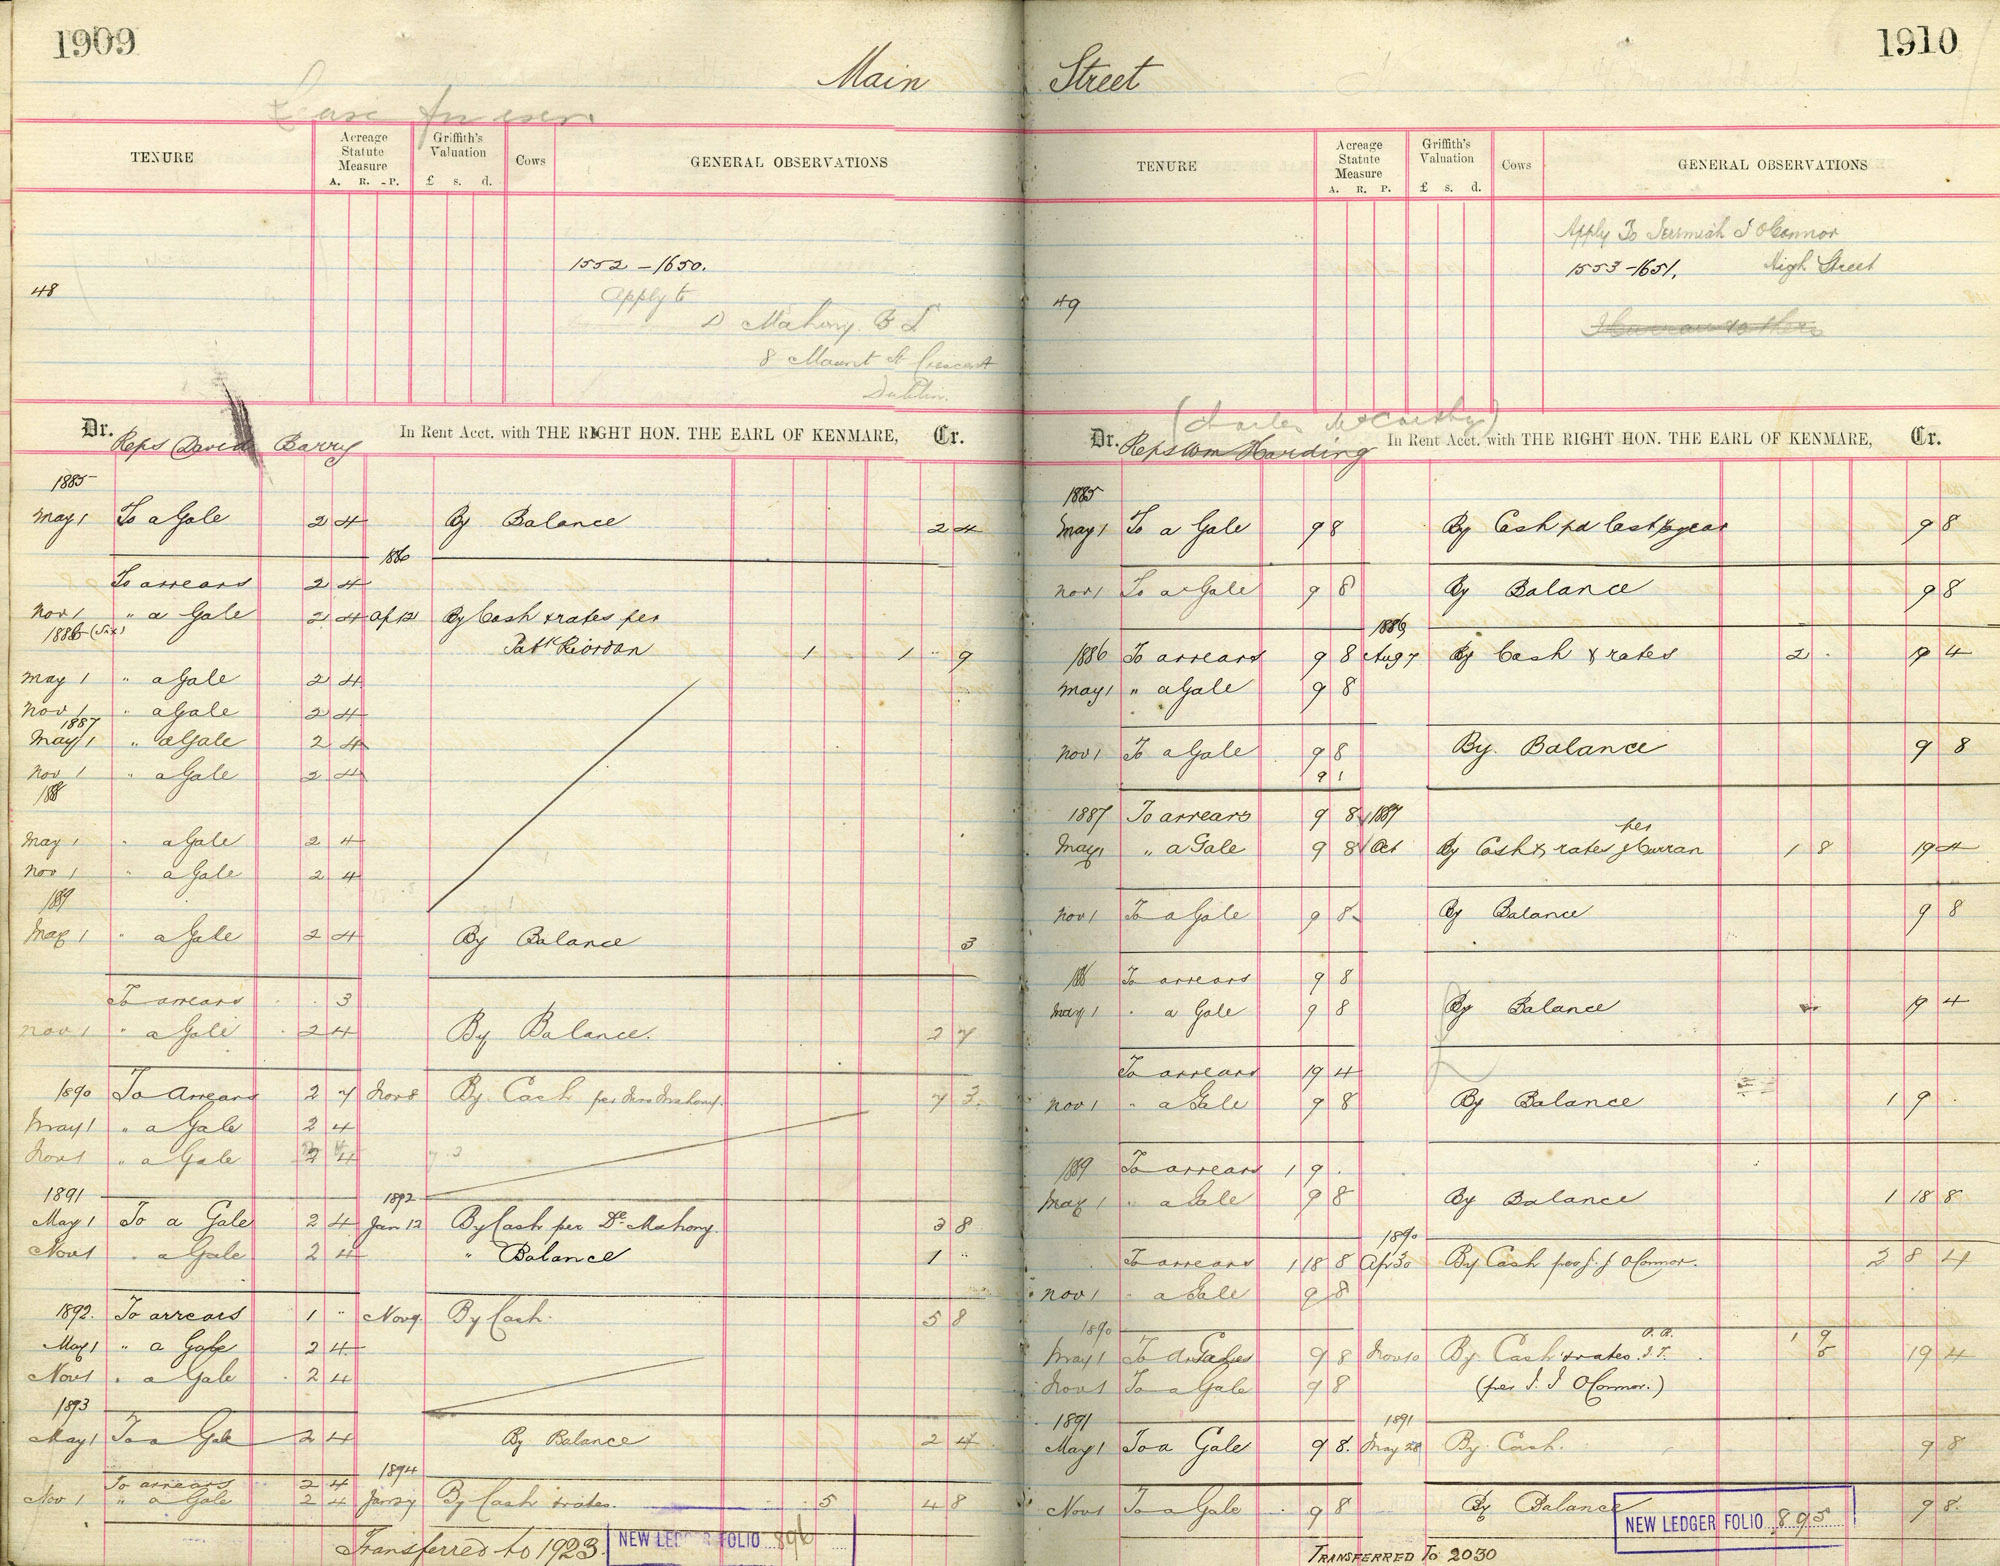 1909
Main
Lease
TENURE
Acreage Statute Measure
A. R. P.
Griffith's Valuation
£ s. d.
Cows
GENERAL OBSERVATIONS
48
1552 - 1650.
Apply to
D Mahony B L
8 Mount St Crescent
Dublin.
Dr. Reps David Barry In Rent Acct. with THE RIGHT HON. THE EARL OF KENMARE, Cr.
1885
May 1 To a Gale 2 4 By Balance 2 4
1886
To arrears 2 4
Nov 1 " a Gale 2 4 Ap 12 By Cash & rates per
1886
Patk Riordan 1 1 " 9
May 1 " a Gale 2 4
Nov 1 " a Gale 2 4
1887
May 1 " a Gale 2 4
Nov 1 " a Gale 2 4
188
May 1 " a Gale 2 4
Nov 1 " a Gale 2 4
1889
May 1 " a Gale 2 4 By Balance 3
To arrears 3
Nov 1 " a Gale 2 4 By Balance. 2 7
1890 To Arrears 2 7 Nov 8 By Cash per Mahony. 7 3
May 1 " a Gale 2 4
Nov 1 " a Gale 2 4 7 3
1891 1892
May 1 To a Gale 2 4 Jan 12 By Cash per Dl. Mahony. 3 8
Nov 1 " a Gale 2 4 " Balance 1 "
1892. To arrears 1 " Nov 9. By Cash. 5 8
May 1 " a Gale 2 4
Nov 1 " a Gale 2 4
1893
May 1 To a Gale 2 4 By Balance 2 4
1894
To arrears 2 4
Nov 1 " a Gale 2 4 Jan 27 By Cash & rates. 5 4 8
Transferred to 1923. NEW LEDGER FOLIO 896
1910
Street
TENURE
Acreage Statute Measure
A. R. P.
Griffith's Valuation
£ s. d.
Cows
GENERAL OBSERVATIONS
Apply To Jeremiah J O'Connor
1553 - 1651. High Street
49
(Charles McCarthy)
Dr. Reps Wm Harding In Rent Acct. with THE RIGHT HON. THE EARL OF KENMARE, Cr.
1885
May 1 To a Gale 9 8 By Cash pd last year 9 8
Nov 1 To a Gale 9 8 By Balance 9 8
1886
1886 To arrears 9 8 Aug 7 By Cash & rates 2 " 19 4
May 1 " a Gale 9 8
Nov 1 To a Gale 9 8 By Balance 9 8
9 1
1887 To arrears 9 8 1887
May 1 " a Gale 9 8 Oct By Cash & rates per J Curran 1 8 19 4
Nov 1 To a Gale 9 8 By Balance 9 8
188 To arrears 9 8
May 1 " a Gale 9 8 By Balance 19 4
To arrears 19 4
Nov 1 " a Gale 9 8 By Balance 1 9 .
1889 To arrears 1 9 .
May 1 " a Gale 9 8 By Balance 1 18 8
1890
To arrears 1 18 8 Ap 30 By Cash per J. J O'Connor. 2 8 4
Nov 1 " a Gale 9 8
1890
May 1 To a Gale 9 8 Nov 10 By Cash & rates 1 9 19 4
Nov 1 To a Gale 9 8 (per J. J O'Connor.)
1891 1891
May 1 To a Gale 9 8. May 28 By Cash. 9 8
Nov 1 To a Gale 9 8 By Balance 9 8.
NEW LEDGER FOLIO 895
TRANSFERRED TO 2030